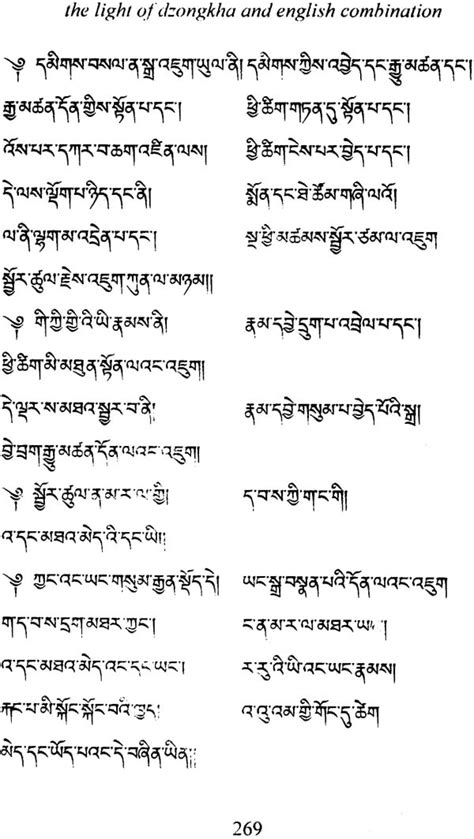 the light of dzongkha and english combination
༄ དམིགས་བསལ་ན་སྒྲ་འཇུག་ཡུལ་ནི། དམིགས་ཀྱིས་འབྱེད་དང་རྒྱུ་མཚན་དང་།
རྒྱུ་མཚན་དོན་གྱིས་སྟོན་པ་དང་། ཕྱི་ཚིག་གཏན་དུ་སྟོན་པ་དང་།
འོས་པར་དཀར་བ་ཆག་འཛིན་ལས། ཕྱི་ཚིག་ངེས་པར་བྱེད་པ་དང་།
དེ་ལས་ལྡོག་པ་ཉིད་དང་ནི། སྨོན་དང་ཐེ་ཚོམ་གཞི་ལའོ།
ལ་ནི་ལྷག་མ་འདྲེན་པ་དང་། སྔ་ཕྱི་མཚམས་སྦྱོར་ཙམ་ལ་འཇུག
སྦྱོར་ཚུལ་རྗེས་འཇུག་ཀུན་ལ་མཉམ།།
༄ གི་ཀྱི་གྱི་འི་ཡི་རྣམས་ནི། རྣམ་དབྱེ་དྲུག་པ་འབྲེལ་པ་དང་།
ཕྱི་ཚིག་མི་མཐུན་སྟོན་ལའང་འཇུག།
དེ་ལྡར་ས་མཐའ་སྦྱར་བ་ནི། རྣམ་དབྱེ་གསུམ་པ་བྱེད་པོའི་སྒྲ།
བྱེ་བྲག་རྒྱུ་མཚན་དོན་ལའང་འཇུག།
༄ སྦྱོར་ཚུལ་ན་མ་ར་ལ་གྱི། ད་བ་ས་ཀྱི་ག་ང་གི།
འ་དང་མཐའ་མེད་འི་དང་ཡི།།
༄ ཀྱང་འང་ཡང་གསུམ་རྒྱན་སྡོད་དེ། ཡང་སྒྲ་བསྣན་པའི་དོན་ལའང་འཇུག
ག་ད་བ་ས་དྲག་མཐར་ཀྱང་། ང་ན་མ་ར་ལ་མཐར་
འ་དང་མཐའ་མེད་འང་དང་ཡང་། ར་རུ་འི་ཡི་འང་ཡང་རྣམས།
རྐང་པ་མི་སྐོང་སྐོང་བའི་ཁྱད། འ་འུ་འམ་གྱི་གོང་དུ་ཚེག
མེད་དང་ཡོད་པའང་དེ་བཞིན་ཡིན།།
269